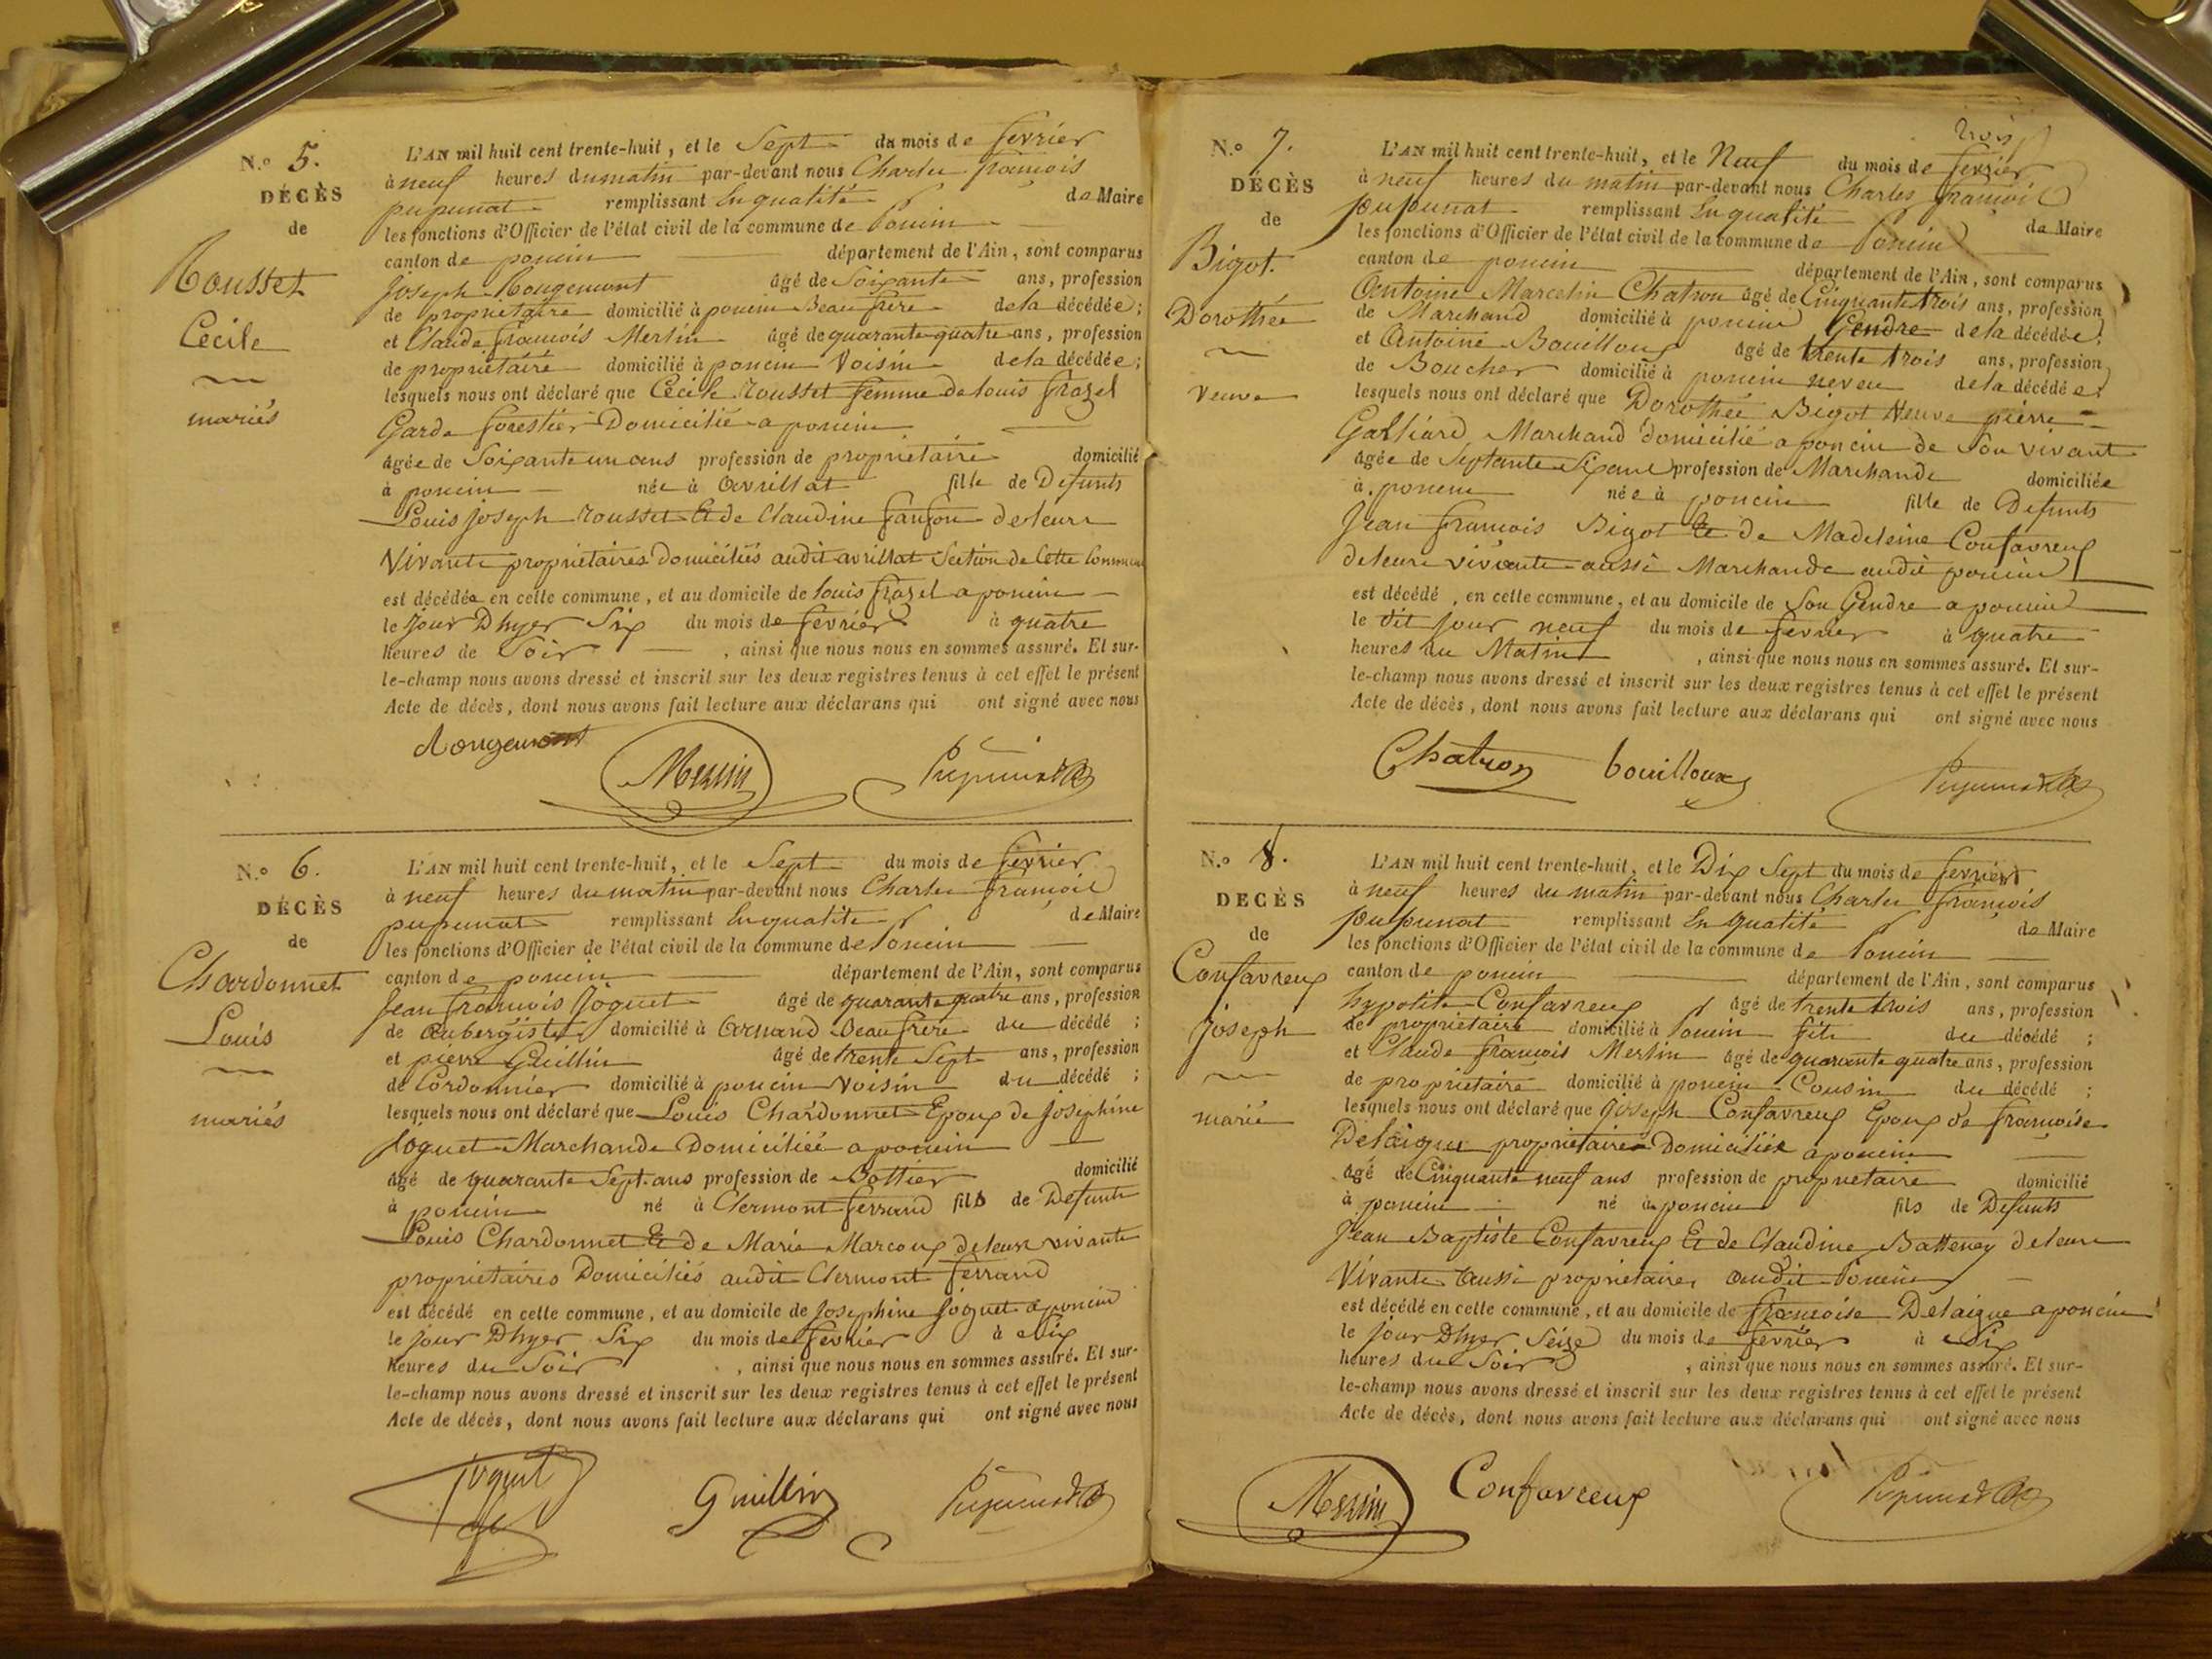 N.o 5.
DÉCÈS
de
Rousset
Cécile
mariés
L'AN mil huit cent trente-huit, et le Sept du mois de février
à neuf heures du matin par-devant nous Charles françois
pupunat remplissant En qualité de Maire
les fonctions d'Officier de l'état civil de la commune de Poncin
canton de poncin département de l'Ain, sont comparus
Joseph Rougemont âgé de Soixante ans, profession
de propriétaire domicilié à poncin Beau frère de la décédée ;
et Claude françois Merlin âgé de quarante quatre ans, profession
de propriétaire domicilié à poncin Voisin de la décédée ;
lesquels nous ont déclaré que Cécile rousset femme de louis frazel
Garde forestier Domicilié a poncin
âgée de Soixante un ans profession de propriétaire domicilié
à poncin née à Avrillat fille de Defunts
Louis joseph rousset Et de Claudine de leurs
Vivants propriétaires Domiciliés audit avrillat Section de Cette Commune
est décédée en cette commune, et au domicile de louis frazel a poncin
le jour D'hyer Six du mois de février à quatre
heures de Soir , ainsi que nous nous en sommes assuré. Et sur-
le-champ nous avons dressé et inscrit sur les deux registres tenus à cet effet le présent
Acte de décès, dont nous avons fait lecture aux déclarans qui ont signé avec nous
Rougemont Merlin Pupunat
N.o 6.
DÉCÈS
de
Chardonnet
Louis
mariés
L'AN mil huit cent trente-huit, et le Sept du mois de février
à neuf heures du matin par-devant nous Charles françois
pupunat remplissant En qualité de Maire
les fonctions d'Officier de l'état civil de la commune de Poncin
canton de poncin département de l'Ain, sont comparus
Jean françois Joguet âgé de quarante quatre ans, profession
de Aubergiste domicilié à Beau frère du décédé ;
et pierre Guillin âgé de trente Sept ans, profession
de Cordonnier domicilié à poncin Voisin du décédé ;
lesquels nous ont déclaré que Louis Chardonnet Epoux de josephine
Joguet Marchande Domiciliée a poncin
âgé de quarante Sept ans profession de Bottier domicilié
à poncin né à Clermont ferrand fils de Defunts
Louis Chardonnet Et de Marie Marcoux de leurs vivants
propriétaires Domiciliés audit Clermont ferrand
est décédé en cette commune, et au domicile de josephine joguet a poncin
le jour D'hyer Six du mois de février à Six
heures du Soir , ainsi que nous nous en sommes assuré. Et sur-
le-champ nous avons dressé et inscrit sur les deux registres tenus à cet effet le présent
Acte de décès, dont nous avons fait lecture aux déclarans qui ont signé avec nous
joguet Guillin Pupunat
trois
N.o 7.
DÉCÈS
de
Bigot.
Dorothée
Veuve
L'AN mil huit cent trente-huit, et le Neuf du mois de février
à neuf heures du matin par-devant nous Charles françois
pupunat remplissant En qualité de Maire
les fonctions d'Officier de l'état civil de la commune de Poncin
canton de poncin département de l'Ain, sont comparus
Antoine Marcelin Chatron âgé de Cinquante trois ans, profession
de Marchand domicilié à poncin Gendre de la décédée ;
et Antoine Bouilloux âgé de trente trois ans, profession
de Boucher domicilié à poncin neveu de la décédée
lesquels nous ont déclaré que Dorothée Bigot Veuve pierre
Galliard Marchand domicilié a poncin de Son vivant
âgée de Septante Six ans profession de Marchande domiciliée
à poncin née à poncin fille de Defunts
Jean françois Bigot Et de Madeleine Confavreux
de leurs vivants aussi Marchands audit poncin
est décédé , en cette commune, et au domicile de Son Gendre a poncin
le dit jour neuf du mois de février à quatre
heures du Matin , ainsi que nous nous en sommes assuré. Et sur-
le-champ nous avons dressé et inscrit sur les deux registres tenus à cet effet le présent
Acte de décès, dont nous avons fait lecture aux déclarans qui ont signé avec nous
Chatron bouilloux Pupunat
N.o 8.
DECÈS
de
Confavreux
joseph
marié
L'AN mil huit cent trente-huit, et le Dix Sept du mois de février
à neuf heures du matin par-devant nous Charles françois
pupunat remplissant En qualité de Maire
les fonctions d'Officier de l'état civil de la commune de Poncin
canton de poncin département de l'Ain, sont comparus
hypolite Confavreux âgé de trente trois ans, profession
de propriétaire domicilié à Poncin fils du décédé ;
et Claude françois Merlin âgé de quarante quatre ans, profession
de propriétaire domicilié à poncin Cousin du décédé ;
lesquels nous ont déclaré que joseph Confavreux Epoux de françoise
Delaigue propriétaires Domiciliés a poncin
âgé de Cinquante neuf ans profession de propriétaire domicilié
à poncin né à poncin fils de Defunts
Jean Baptiste Confavreux Et de Claudine Batteney de leurs
Vivants Aussi propriétaires audit Poncin
est décédé en cette commune, et au domicile de françoise Delaigue a poncin
le jour D'hyer Seize du mois de février à Six
heures du Soir , ainsi que nous nous en sommes assuré. Et sur-
le-champ nous avons dressé et inscrit sur les deux registres tenus à cet effet le présent
Acte de décès, dont nous avons fait lecture aux déclarans qui ont signé avec nous
Merlin Confavreux Pupunat